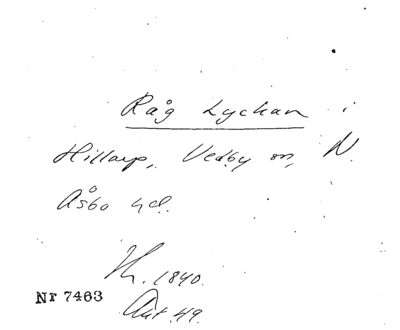 Råg Lyckan i
Hillarp, Vedby sn, N.
Åsbo hd.
1840.
Nr 7463
Akt 49.